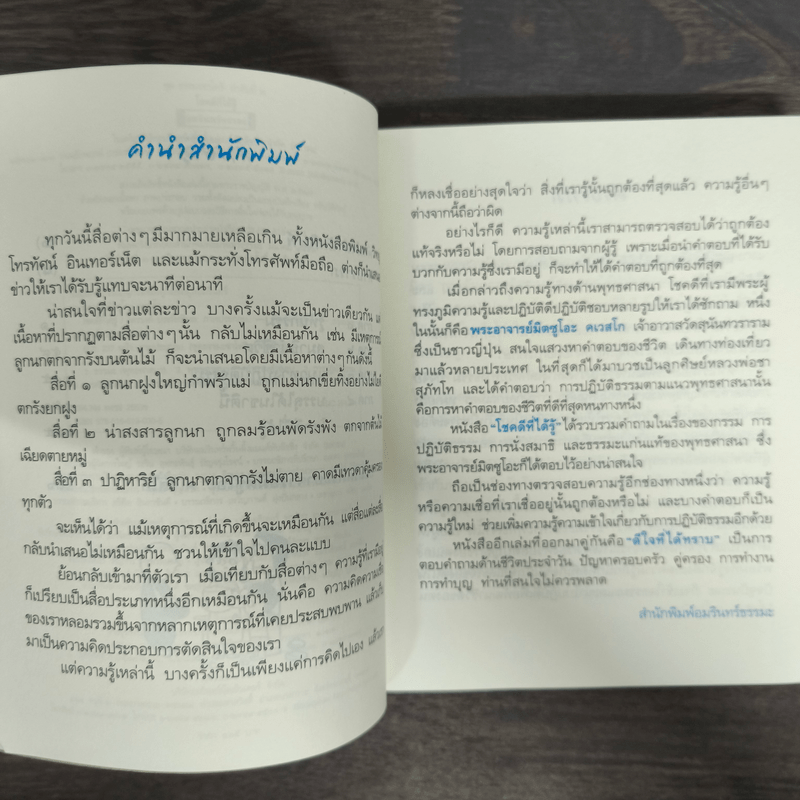 คำนำสำนักพิมพ์
ทุกวันนี้สื่อต่างๆ มีมากมายเหลือเกิน ทั้งหนังสือพิมพ์
โทรทัศน์ อินเทอร์เน็ต และแม้กระทั่งโทรศัพท์มือถือ ต่างก็นำเสนอ
ข่าวให้เราได้รับรู้แทบจะนาทีต่อนาที
น่าสนใจที่ข่าวแต่ละข่าว บางครั้งแม้จะเป็นข่าวเดียวกัน
เนื้อหาที่ปรากฏตามสื่อต่างๆ นั้น กลับไม่เหมือนกัน เช่น มีเหตุการณ์
ลูกนกตกจากรังบนต้นไม้ ก็จะนำเสนอโดยมีเนื้อหาต่างๆ กันดังนี้
สื่อที่ ๑ ลูกนกฝูงใหญ่กำพร้าแม่ ถูกแม่นกเขี่ยทิ้งอย่าง
ตกรังยกฝูง
สื่อที่ ๒ น่าสงสารลูกนก ถูกลมร้อนพัดรังพัง ตกจากต้นไม้
เฉียดตายหมู่
สื่อที่ ๓ ปาฏิหาริย์ ลูกนกตกจากรังไม่ตาย คาดมีเทวดาคุ้มครอง
ทุกตัว
จะเห็นได้ว่า แม้เหตุการณ์ที่เกิดขึ้นจะเหมือนกัน แต่สื่อแต่ละสื่อ
กลับนำเสนอไม่เหมือนกัน ชวนให้เข้าใจไปคนละแบบ
ย้อนกลับเข้ามาที่ตัวเรา เมื่อเทียบกับสื่อต่างๆ ความรู้ที่เรามีอยู่
ก็เปรียบเป็นสื่อประเภทหนึ่งอีกเหมือนกัน นั่นคือ ความคิดความเชื่อ
ของเราหลอมรวมขึ้นจากหลากเหตุการณ์ที่เคยประสบพบพาน
มาเป็นความคิดประกอบการตัดสินใจของเรา
แต่ความรู้เหล่านี้ บางครั้งก็เป็นเพียงแค่การคิดไปเอง
ก็หลงเชื่ออย่างสุดใจว่า สิ่งที่เรารู้นั้นถูกต้องที่สุดแล้ว ความรู้อื่นๆ
ต่างจากนี้ถือว่าผิด
อย่างไรก็ดี ความรู้เหล่านี้เราสามารถตรวจสอบได้ว่าถูกต้อง
แท้จริงหรือไม่ โดยการสอบถามจากผู้รู้ เพราะเมื่อนำคำตอบที่ได้รับ
บวกกับความรู้ซึ่งเรามีอยู่ ก็จะทำให้ได้คำตอบที่ถูกต้องที่สุด
เมื่อกล่าวถึงความรู้ทางด้านพุทธศาสนา โชคดีที่เรามีพระผู้
ทรงภูมิความรู้และปฏิบัติดีปฏิบัติชอบหลายรูปให้เราได้ซักถาม หนึ่ง
ในนั้นก็คือ พระอาจารย์มิตซูโอะ คเวสโก เจ้าอาวาสวัดสุนันทวราราม
ซึ่งเป็นชาวญี่ปุ่น สนใจแสวงหาคำตอบของชีวิต เดินทางท่องเที่ยว
มาแล้วหลายประเทศ ในที่สุดก็ได้มาบวชเป็นลูกศิษย์หลวงพ่อชา
สุภัทโท และได้คำตอบว่า การปฏิบัติธรรมตามแนวพุทธศาสนานั้น
คือการหาคำตอบของชีวิตที่ดีที่สุดหนทางหนึ่ง
หนังสือ "โชคดีที่ได้รู้" ได้รวบรวมคำถามในเรื่องของกรรม การ
ปฏิบัติธรรม การนั่งสมาธิ และธรรมะแก่นแท้ของพุทธศาสนา ซึ่ง
พระอาจารย์มิตซูโอะก็ได้ตอบไว้อย่างน่าสนใจ
ถือเป็นช่องทางตรวจสอบความรู้อีกช่องทางหนึ่งว่า ความรู้
หรือความเชื่อที่เราเชื่ออยู่นั้นถูกต้องหรือไม่ และบางคำตอบก็เป็น
ความรู้ใหม่ ช่วยเพิ่มความรู้ความเข้าใจเกี่ยวกับการปฏิบัติธรรมอีกด้วย
หนังสืออีกเล่มที่ออกมาคู่กันคือ "ดีใจที่ได้ทราบ" เป็นการ
ตอบคำถามด้านชีวิตประจำวัน ปัญหาครอบครัว คู่ครอง การทำงาน
การทำบุญ ท่านที่สนใจไม่ควรพลาด
สำนักพิมพ์อมรินทร์ธรรมะ